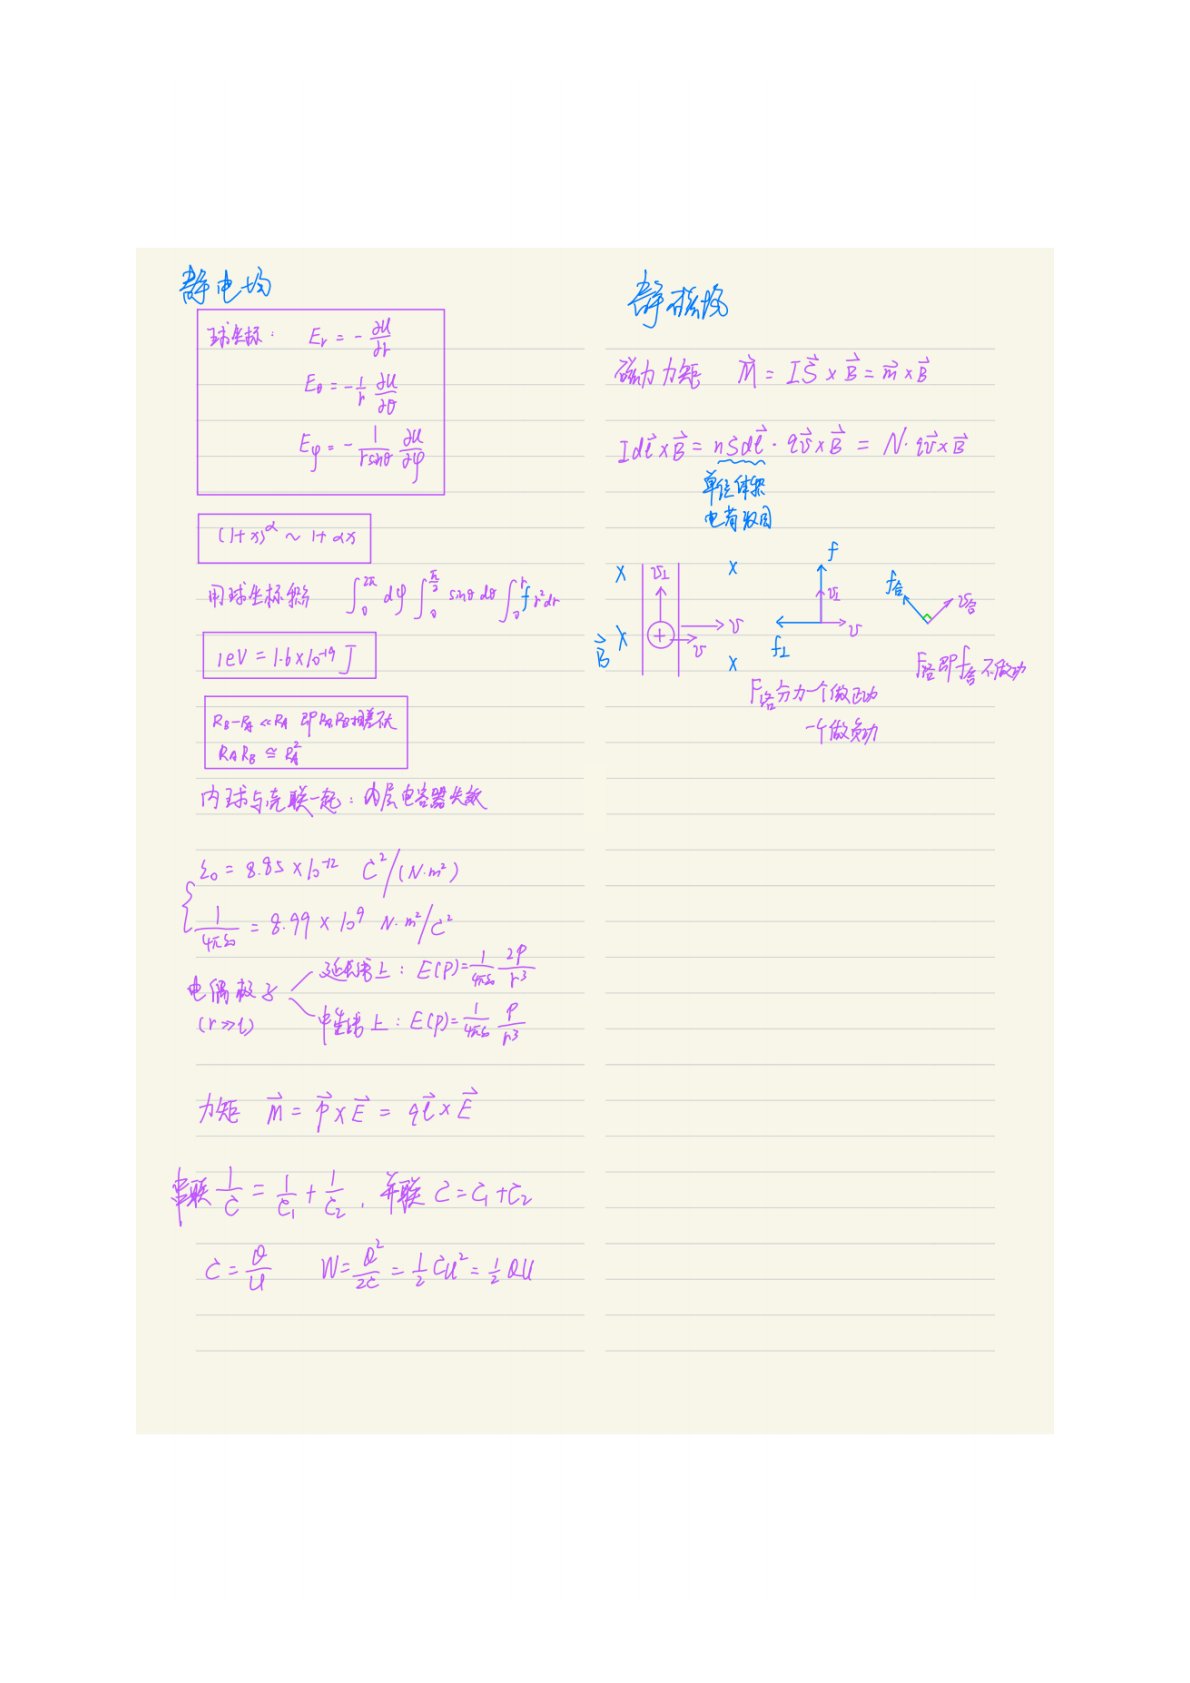 静电场
球坐标: E_r = -∂U/∂r
E_θ = -1/r ∂U/∂θ
E_φ = -1/(r sinθ) ∂U/∂φ
(1+x)^α ~ 1+αx
用球坐标积分 ∫_0^{2π} dφ ∫_0^{π/2} sinθ dθ ∫_0^r f r²dr
1eV = 1.6×10^{-19} J
R_B-R_A ≪ R_A 即R_A R_B相差不大
R_A R_B ≅ R_A²
内球与壳联一起: 内层电容器失效
ε₀ = 8.85×10^{-12} C²/(N·m²)
1/(4πε₀) = 8.99×10^9 N·m²/C²
电偶极子
(r≫l)
延长线上: E(P)=1/(4πε₀) 2p/r³
中垂线上: E(P)=1/(4πε₀) p/r³
力矩 M⃗ = p⃗×E⃗ = ql⃗×E⃗
串联 1/C = 1/C₁ + 1/C₂, 并联 C=C₁+C₂
C = Q/U W = Q²/2C = ½CU² = ½QU
静磁场
磁力力矩 M⃗ = IS⃗×B⃗ = m⃗×B⃗
Idl⃗×B⃗ = nSdl⃗·qv⃗×B⃗ = N·qv⃗×B⃗
单位体积
电荷数目
× v⊥ × f f合
v⊥ v合
B⃗ × + v v f⊥ v
×
F洛即f合不做功
F洛分力一个做正功
一个做负功